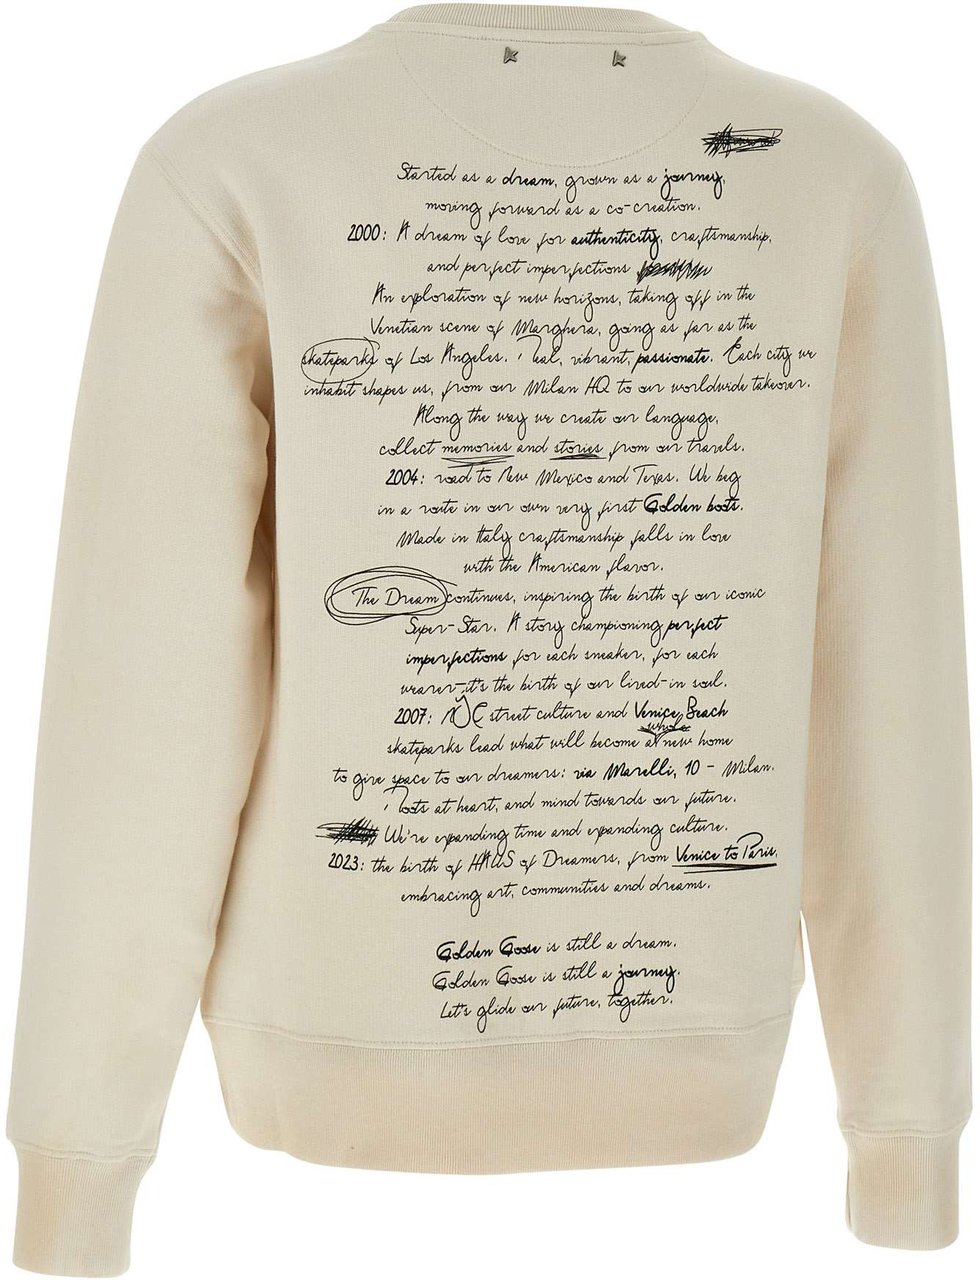 Started as a dream, grown as a journey,
moving forward as a co-creation.
2000: A dream of love for authenticity, craftsmanship,
and perfect imperfections
An exploration of new horizons, taking off in the
Venetian scene of Marghera, going as far as the
skateparks of Los Angeles. Real, vibrant, passionate. Each city we
inhabit shapes us, from our Milan HQ to our worldwide takeover.
Along the way we create our language,
collect memories and stories from our travels.
2004: road to New Mexico and Texas. We beg
in a route in our own very first Golden boots.
Made in Italy craftsmanship falls in love
with the American flavor.
The Dream continues, inspiring the birth of our iconic
Super-Star. A story championing perfect
imperfections for each sneaker, for each
wearer-it's the birth of our lived-in soul.
2007: NYC street culture and Venice Beach
whole
skateparks lead what will become a new home
to give space to our dreamers: via Marelli, 10 - Milan.
Roots at heart, and mind towards our future.
We're expanding time and expanding culture.
2023: the birth of HAUS of Dreamers, from Venice to Paris,
embracing art, communities and dreams.
Golden Goose is still a dream.
Golden Goose is still a journey.
Let's glide our future, together.